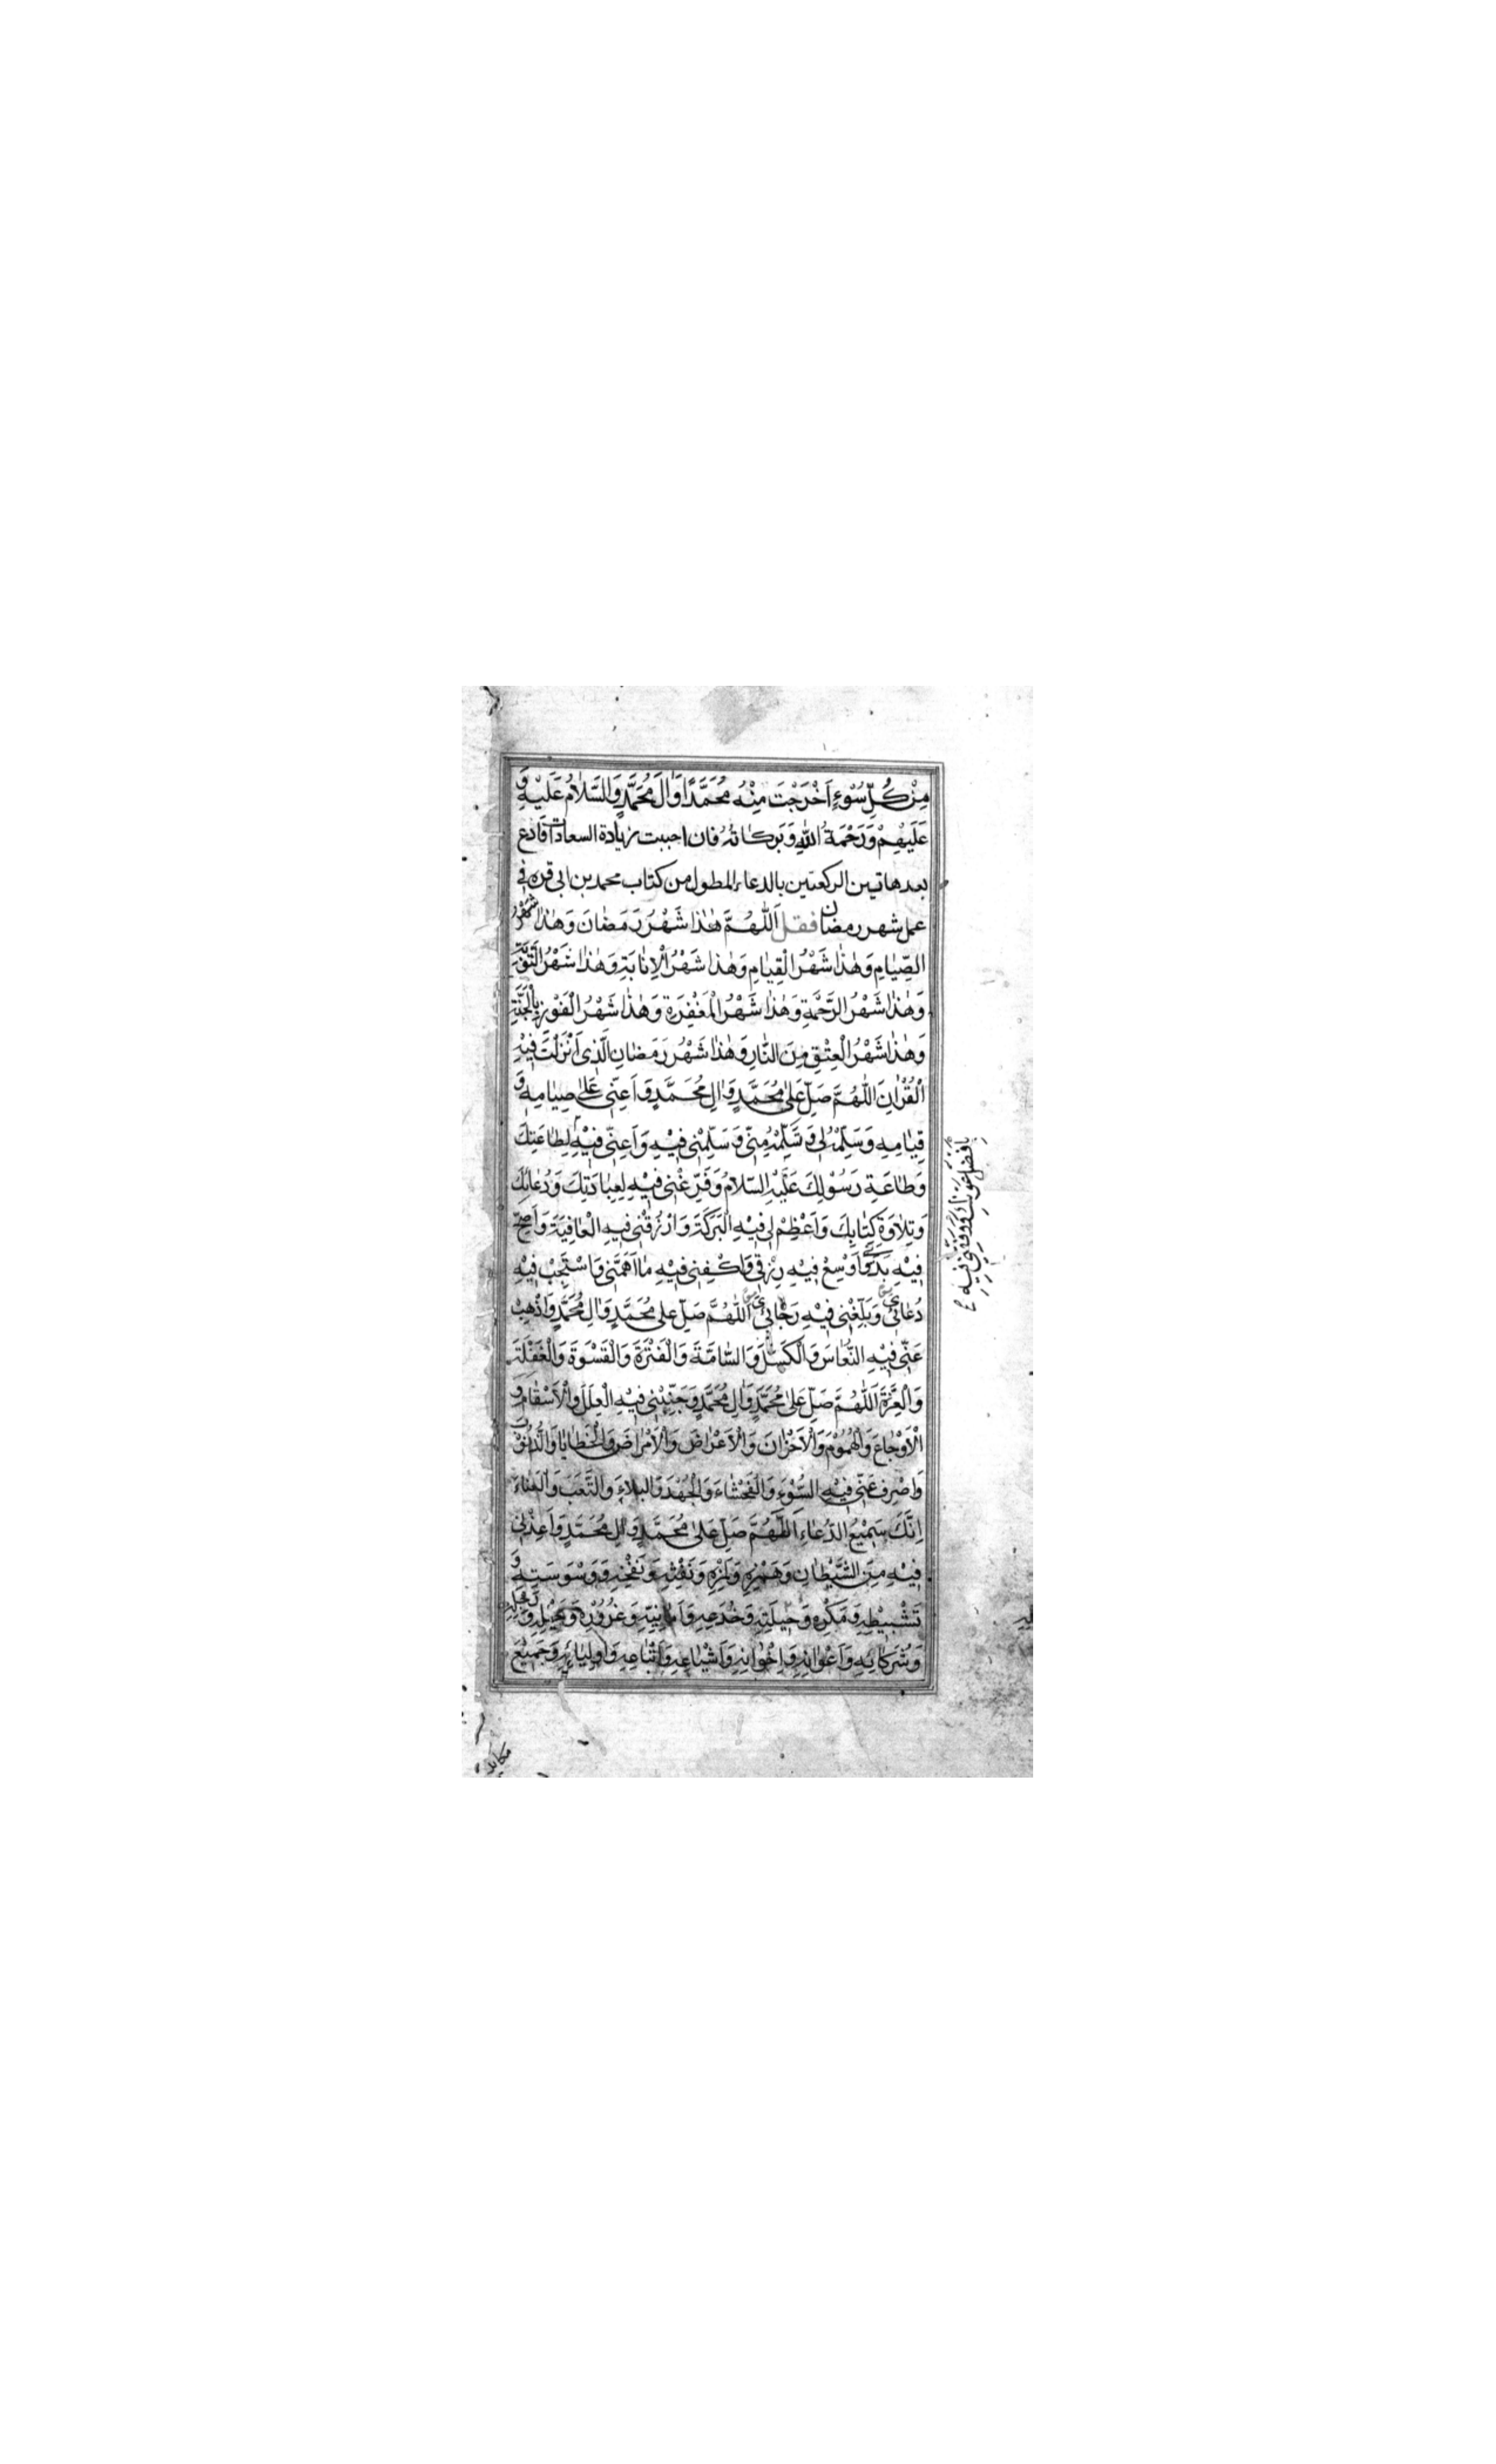 مِنْ كُلِّ سُوْءٍ اَخْرَجْتَ مِنْهُ مُحَمَّدًا وَاٰلَ مُحَمَّدٍ وَالسَّلَامُ عَلَيْهِ وَ
عَلَيْهِمْ وَرَحْمَةُ اللّٰهِ وَبَرَكَاتُهُ فان احببت زيادة السعادات فادع
بعد هاتين الركعتين بالدعاء المطول من كتاب محمد بن ابى قره فى
عمل شهر رمضان فقل اَللّٰهُمَّ هٰذَا شَهْرُ رَمَضَانَ وَهٰذَا شَهْرُ
الصِّيَامِ وَهٰذَا شَهْرُ الْقِيَامِ وَهٰذَا شَهْرُ الْاِنَابَةِ وَهٰذَا شَهْرُ التَّوْبَةِ
وَهٰذَا شَهْرُ الرَّحْمَةِ وَهٰذَا شَهْرُ الْمَغْفِرَةِ وَهٰذَا شَهْرُ الْفَوْزِ بِالْجَنَّةِ
وَهٰذَا شَهْرُ الْعِتْقِ مِنَ النَّارِ وَهٰذَا شَهْرُ رَمَضَانَ الَّذِى اَنْزَلْتَ فِيْهِ
الْقُرْاٰنَ اَللّٰهُمَّ صَلِّ عَلٰى مُحَمَّدٍ وَاٰلِ مُحَمَّدٍ وَاَعِنِّى عَلٰى صِيَامِهِ وَ
قِيَامِهِ وَسَلِّمْهُ لِى وَسَلِّمْهُ مِنِّى وَسَلِّمْنِى فِيْهِ وَاَعِنِّى فِيْهِ لِطَاعَتِكَ
وَطَاعَةِ رَسُوْلِكَ عَلَيْهِ السَّلَامُ وَفَرِّغْنِى فِيْهِ لِعِبَادَتِكَ وَدُعَائِكَ
وَتِلَاوَةِ كِتَابِكَ وَاَعْظِمْ لِى فِيْهِ الْبَرَكَةَ وَارْزُقْنِى فِيْهِ الْعَافِيَةَ وَاَصِحَّ
فِيْهِ بَدَنِى وَاَوْسِعْ فِيْهِ رِزْقِى وَاكْفِنِى فِيْهِ مَا اَهَمَّنِى وَاسْتَجِبْ فِيْهِ
دُعَائِى وَبَلِّغْنِى فِيْهِ رَجَائِى اَللّٰهُمَّ صَلِّ عَلٰى مُحَمَّدٍ وَاٰلِ مُحَمَّدٍ وَاَذْهِبْ
عَنِّى فِيْهِ النُّعَاسَ وَالْكَسَلَ وَالسَّامَةَ وَالْفَتْرَةَ وَالْقَسْوَةَ وَالْغَفْلَةَ
وَالْغِرَّةَ اَللّٰهُمَّ صَلِّ عَلٰى مُحَمَّدٍ وَاٰلِ مُحَمَّدٍ وَجَنِّبْنِى فِيْهِ الْعِلَلَ وَالْاَسْقَامَ وَ
الْاَوْجَاعَ وَالْهُمُوْمَ وَالْاَحْزَانَ وَالْاَعْرَاضَ وَالْاَمْرَاضَ وَالْخَطَايَا وَالذُّنُوْبَ
وَاصْرِفْ عَنِّى فِيْهِ السُّوْءَ وَالْفَحْشَاءَ وَالْجُهْدَ وَالْبَلَاءَ وَالتَّعَبَ وَالْعَنَاءَ
اِنَّكَ سَمِيْعُ الدُّعَاءِ اَللّٰهُمَّ صَلِّ عَلٰى مُحَمَّدٍ وَاٰلِ مُحَمَّدٍ وَاَعِذْنِى
فِيْهِ مِنَ الشَّيْطَانِ وَهَمْزِهِ وَلَمْزِهِ وَنَفْثِهِ وَنَفْخِهِ وَوَسْوَسَتِهِ وَ
تَثْبِيْطِهِ وَمَكْرِهِ وَحِيْلَتِهِ وَخُدَعِهِ وَاَمَانِيِّهِ وَغُرُوْرِهِ وَخَيْلِهِ وَرَجِلِهِ
وَشُرَكَائِهِ وَاَعْوَانِهِ وَاِخْوَانِهِ وَاَشْيَاعِهِ وَاَتْبَاعِهِ وَاَوْلِيَائِهِ وَجَمِيْعِ
بِاَفْضَلِ عَوْنِكَ وَوَفِّقْنِى فِيْهِ
مكايد